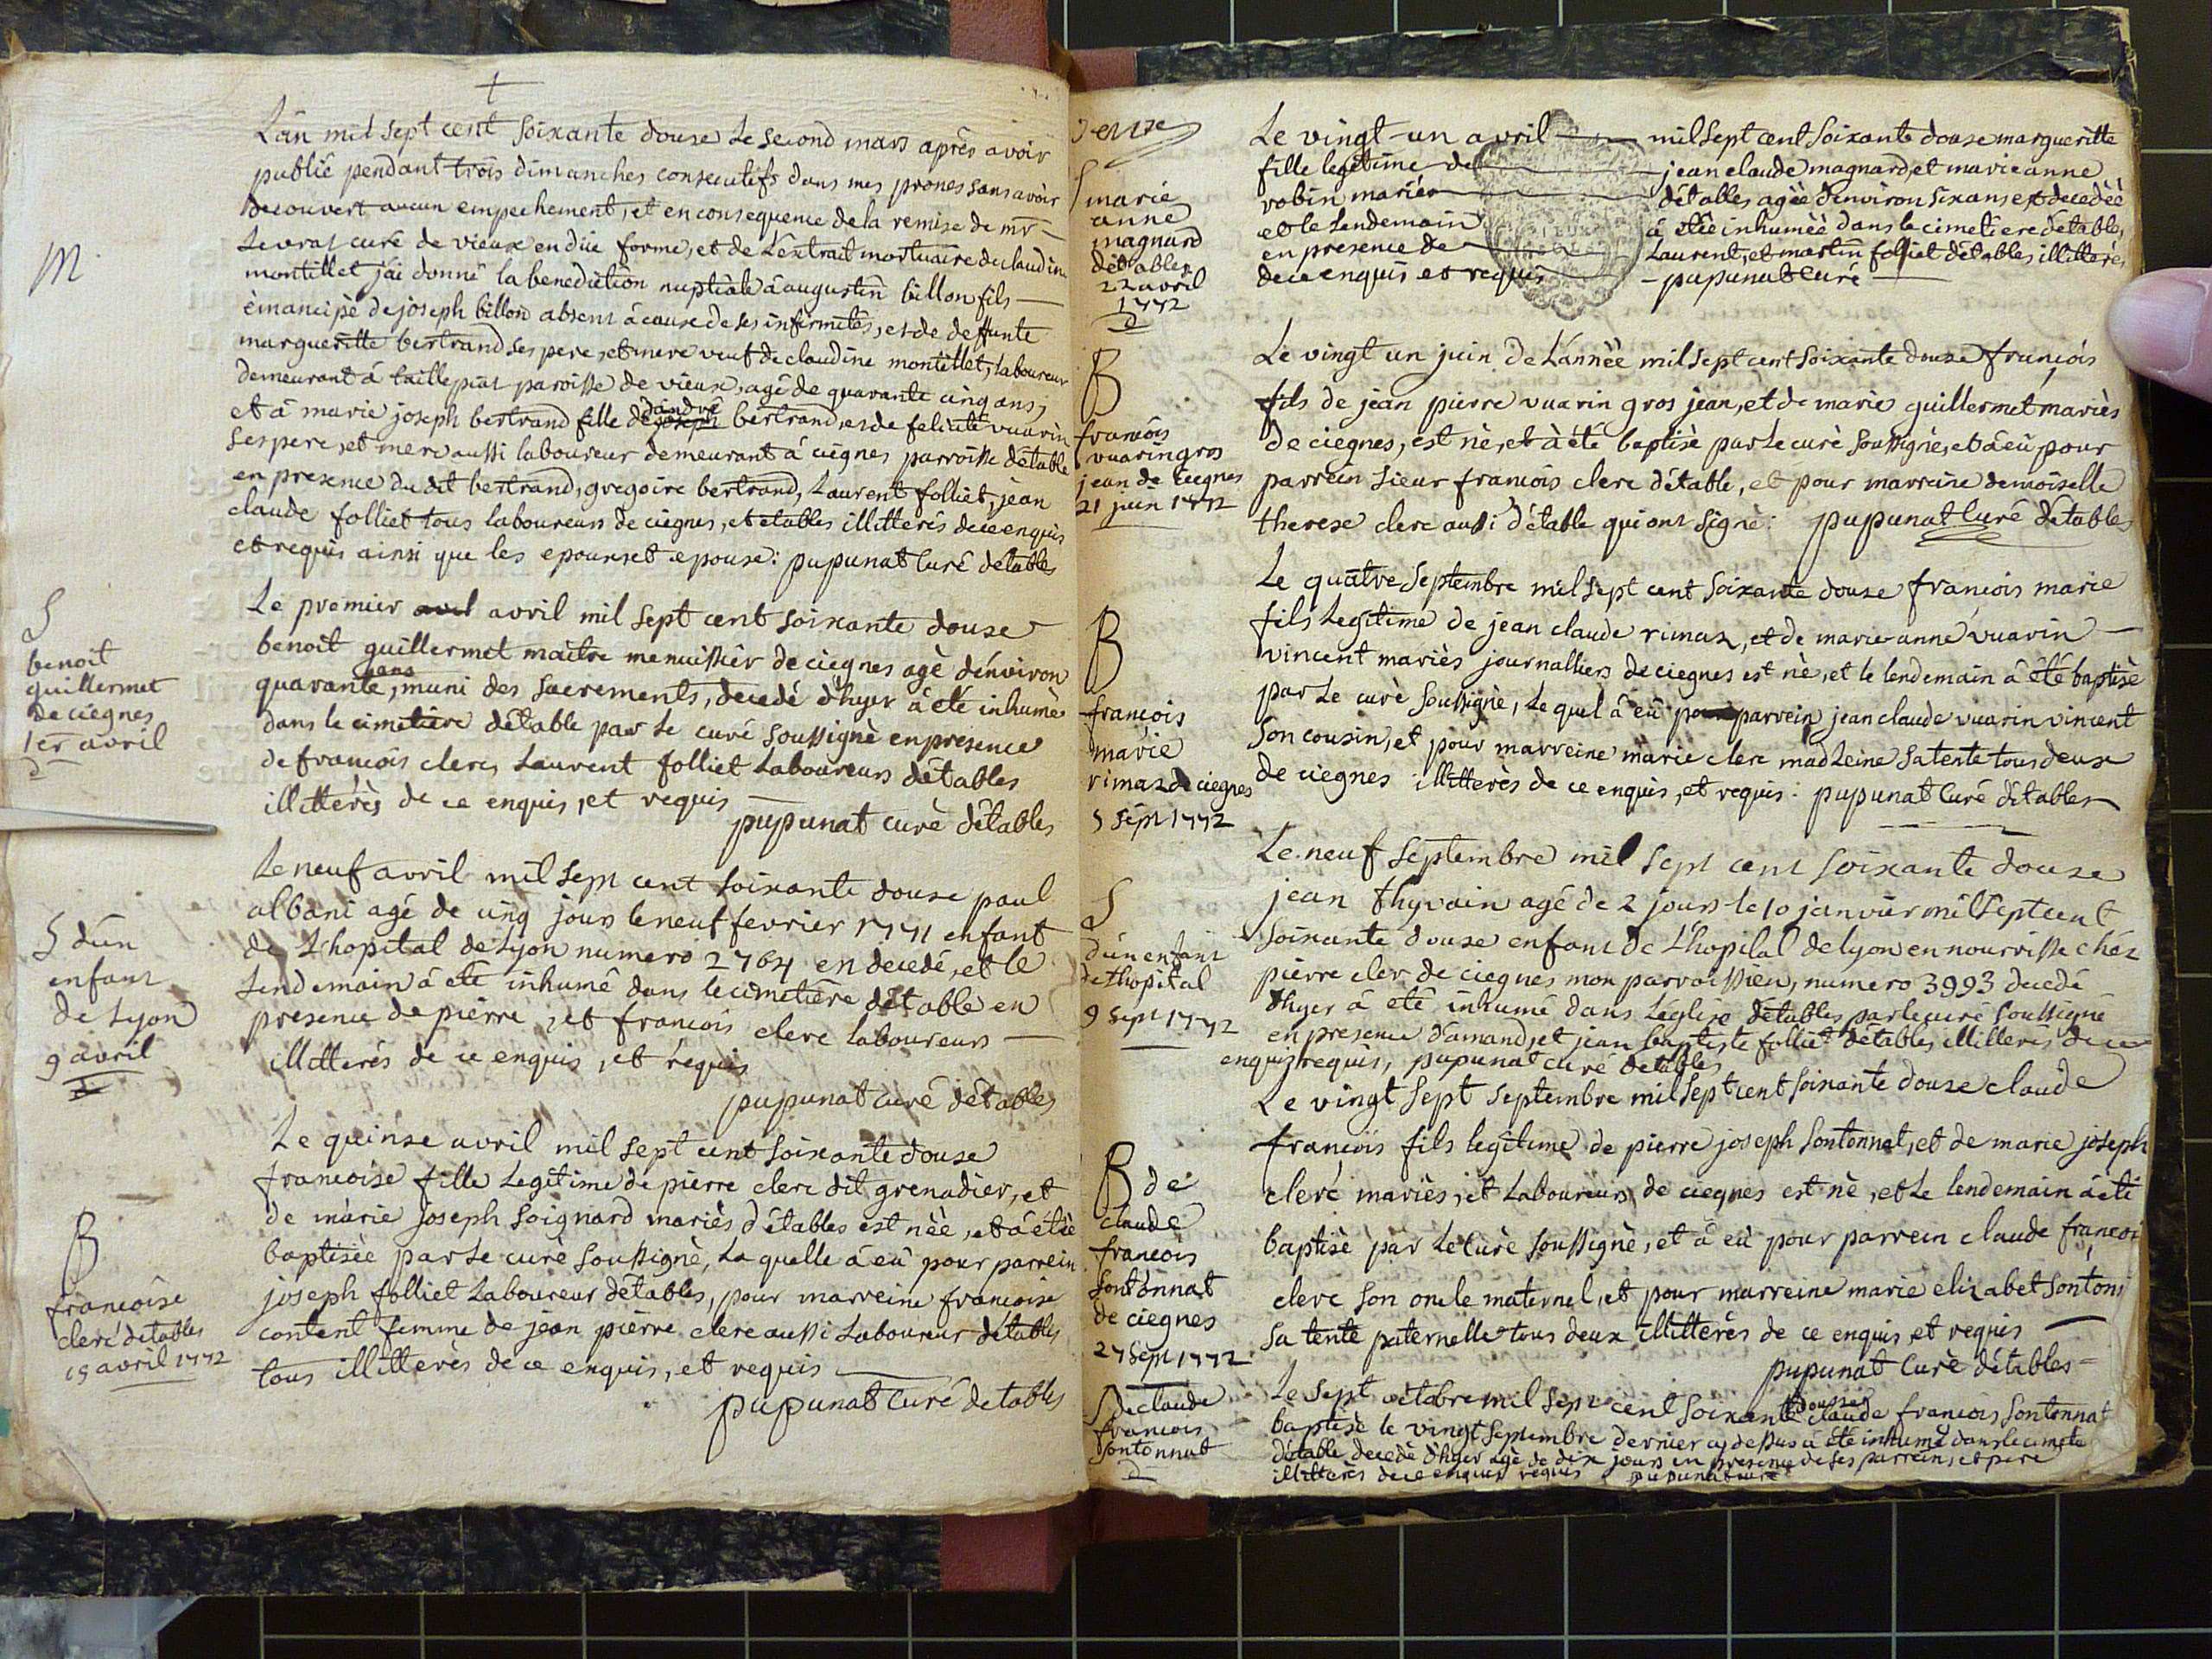 L'ân mil sept cent soixante douse le second mars après avoir
publié pendant trois dimanches consecutifs dans mes prones sans avoir
decouvert aucun empechement, et en consequence de la remise de mr
curé de vieux en düe forme, et de L'extrait mortuaire de claudine
montillet j'ai donné la benediction nuptiale â augustin billon fils
émancipé de joseph billon absent â cause de ses infirmités, et de deffunte
margueritte bertrand ses pere, et mere veuf de claudine montillet, laboureur
demeurant â paroisse de vieux, agé de quarante cinq ans,
et â marie joseph bertrand fille d'andré bertrand, et de felicité vuarin
ses pere, et mere aussi laboureur demeurant â ciegnes parroisse d'étable
en presence du dit bertrand, gregoire bertrand, Laurent folliet, jean
claude folliet tous laboureurs de ciegnes, et étables illitterés de ce enquis
et requis ainsi que les epoux et epouse: pupunat Curé d'étables
M
Le premier avril mil sept cent soixante douse
benoit guillermet maitre menuissier de ciegnes agè d'environ
quarante ans, muni des sacrements, decedé d'hyer â été inhumè
dans le cimetiere d'étable par le curé soussignè en presence
de francois clerc, Laurent folliet Laboureurs d'étables
illitterès de ce enquis, et requis
pupunat curè d'étables
S
benoit
guillermet
de ciegnes
1er avril
Le neuf avril mil sept cent soixante douse paul
albani agé de cinq jours le neuf fevrier 1771 enfant
de L'hopital de Lyon numero 2764 en decedé, et le
Lendemain â été inhumé dans le cimetière d'étable en
presence de pierre, et francois clerc laboureurs
illitterés de ce enquis, et requis
pupunat curé d'étables
S d'ún
enfant
de Lyon
9 avril
Le quinse avril mil sept cent soixante douse
francoise fille Legitime de pierre clerc dit grenadier, et
de marie joseph soignard mariès d'étables est nèè, et â étèè
baptisèè par le curè soussignè, La quelle â eû pour parrein
joseph folliet Laboureur d'étables, pour marreine francoise
content femme de jean pierre clerc aussi Laboureur d'étables
tous illitterès de ce enquis, et requis
pupunat Curé detables
B
francoise
clerc d'etables
15 avril 1772
Le vingt-un avril mil sept cent soixante douse margueritte
fille legitime de jean claude magnard, et marie anne
robin mariés d'étables agèè d'environ six ans est decedèè
et le Lendemain â étèe inhumèè dans le cimetiere d'étable,
en presence de Laurent, et martin folliet d'étables illitterés
de ce enquis et requis pupunat Curé
S marie
anne
magnard
d'étables
22 avril
1772
Le vingt un juin de L'annèè mil sept cent soixante douse francois
fils de jean pierre vuarin gros jean, et de marie guillermet mariès
de ciegnes, est nè, et â été baptisè par le curè soussignè, et â eû pour
parrein sieur francois clerc d'étable, et pour marreine demoiselle
therese clerc aussi d'étable qui ont signè: pupunat Curé d'étables
B
francois
vuarin gros
jean de ciegnes
21 juin 1772
Le quatre septembre mil sept cent soixante douse francois marie
fils Legitime de jean claude rimaz, et de marie-anne vuarin
vincent mariès journalliers de ciegnes est nè, et le lendemain â été baptisè
par Le curè soussignè, Le quel â eû parrein jean claude vuarin vincent
son cousin, et pour marreine marie clerc madLeine sa tente tous deux
de ciegnes illitterès de ce enquis, et requis: pupunat Curé d'étables
B
francois
marie
rimaz de ciegnes
5 sept 1772
Le neuf septembre mil sept cent soixante douse
jean thyvain agé de 2 jours le 10 janvier mil sept cent
soixante douse enfant de L'hopital de lyon en nourrisse chéz
pierre clerc de ciegnes mon parroissien, numero 3993 decedé
d'hyer â été inhumé dans L'église d'étables par le curé soussigné
en presence d'amand, et jean baptiste folliet d'étables illitterés de ce
enquis, requis, pupunat curé d'etables
S
d'ún enfant
de Lhopital
9 sept 1772
Le vingt sept septembre mil sept cent soixante douse claude
francois fils legitime de pierre joseph sontonnat, et de marie joseph
clerc mariès, et Laboureurs de ciegnes est nè, et Le lendemain â été
baptisè par Le Curè soussignè, et â eû pour parrein claude francoi
clerc son oncle maternel, et pour marreine marie elizabet sonton
sa tente paternelle tous deux illitterès de ce enquis, et requis
pupunat Curè d'étables
B de
claude
francois
sontonnat
de ciegnes
27 sept 1772
Le sept octobre mil sept cent soixante douse claude francois sontonnat
baptisè le vingt septembre dernier cy dessus â été inhumé dans le cimete
d'étable decedè d'hyer agè de dix jours en presence de ses parrein, et pere
illitterès de ce enquis requis pupunat curé
S de claude
francois
sontonnat